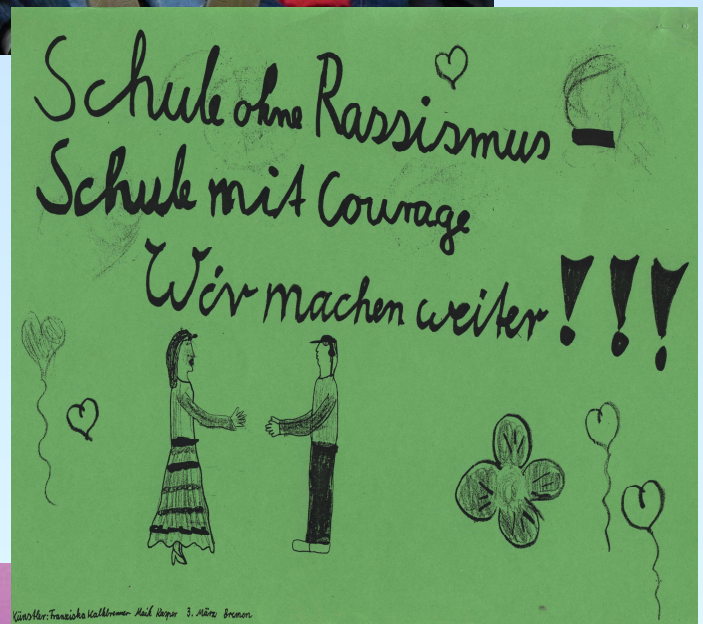 Schule ohne Rassismus -
Schule mit Courage
Wir machen weiter!!!
Künstler: Franziska Kalkbrenner Maik Kasper 3. März Bremen